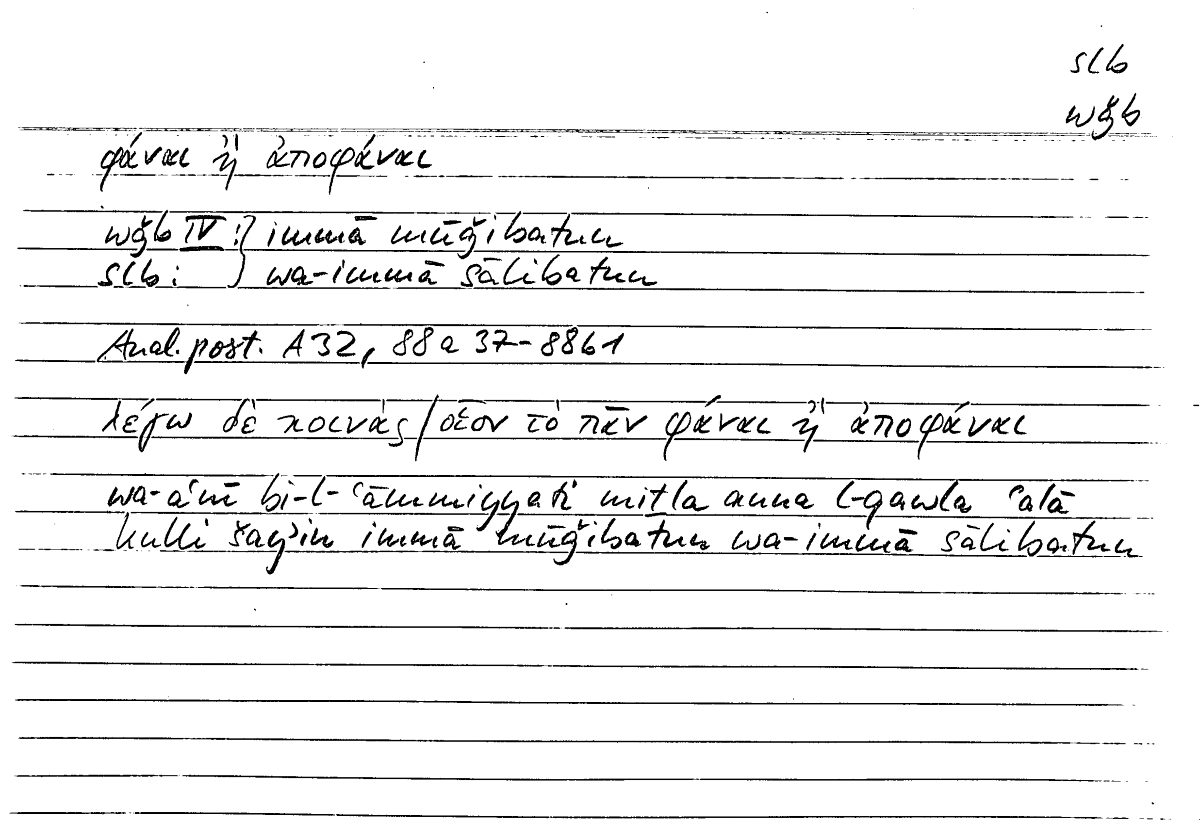 slb
wǧb
φάναι ἢ ἀποφάναι
wǧb IV : } immā mūǧibatun
slb : } wa-immā sālibatun
Anal. post. A 32, 88 a 37-88b1
λέγω δὲ κοινάς / οἷον τὸ πᾶν φάναι ἢ ἀποφάναι
wa-aʿnī bi-l-ʿāmmiyyati miṯla anna l-qawla ʿalā
kulli šayʾin immā mūǧibatun wa-immā sālibatun